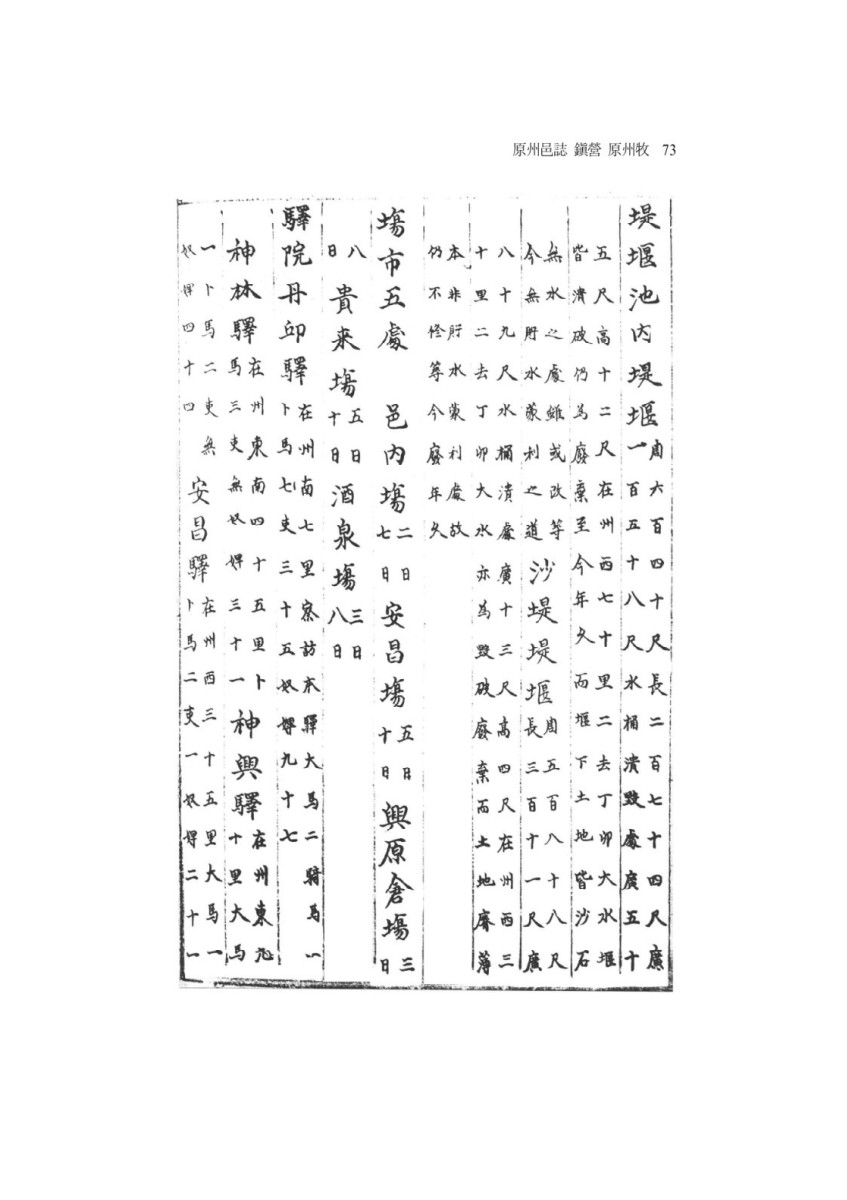 原州邑誌 鎭營 原州牧 73
堤堰池內堤堰 周六百四十尺長二百七十四尺廣
一百五十八尺水桶潰毀處廣五十
五尺高十二尺在州西七十里二去丁卯大水堰
皆潰破仍爲廢棄至今年久而堰下土地皆沙石
無水之處雖或改等
今無所水蒙利之道 沙堤堤堰 周五百八十八尺
長三百十一尺廣
八十九尺水桶潰處廣十三尺高四尺在州西三
十里二去丁卯大水亦爲毀破廢棄而土地瘠薄
本非貯水蒙利處故
仍不修等今廢年久
場市五處 邑內場 二日
七日 安昌場 五日
十日 興原倉場 三
日
八
日 貴來場 五日
十日 酒泉場 三日
八日
驛院丹邱驛 在州南七里察訪本驛大馬二騎馬一
卜馬七吏三十五奴婢九十七
神林驛 在州東南四十五里卜
馬三吏無奴婢三十一 神興驛 在州東九
十里大馬
一卜馬二吏無
奴婢四十四 安昌驛 在州西三十五里大馬一
卜馬二吏一奴婢二十一